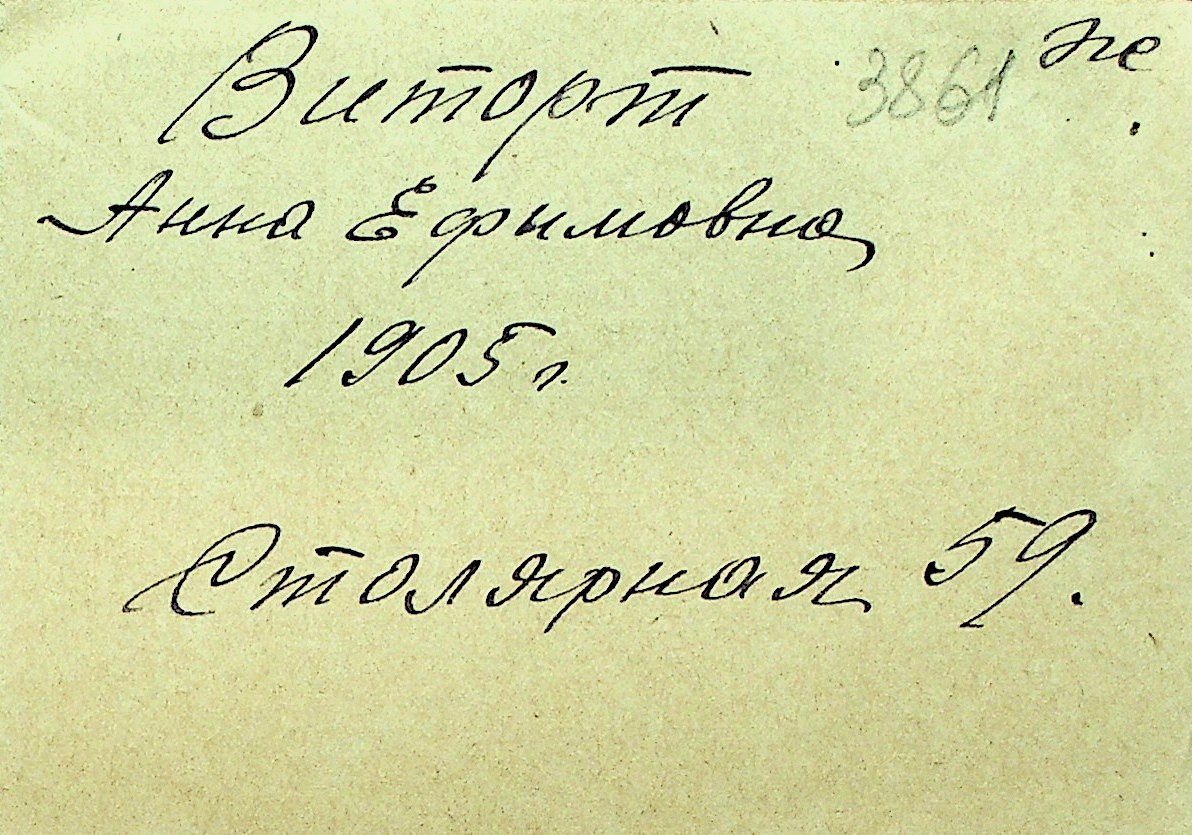 Виторт 3861 же
Анна Ефимовна
1905 г.
Столярная 59.